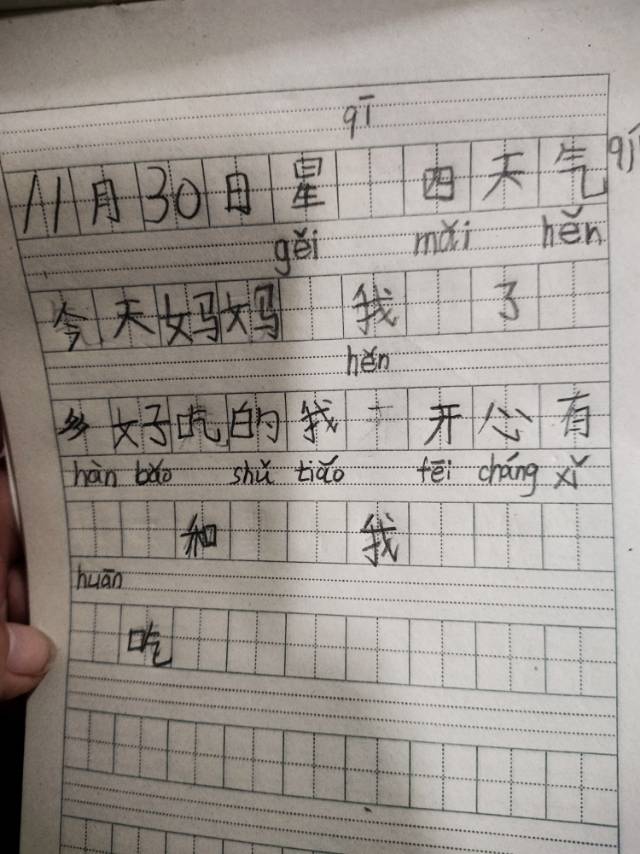 qī
11月30日星 四天气 qí
gěi mǎi hěn
今天妈妈 我 了
hěn
多好吃的我 开心有
hàn bǎo shǔ tiáo fēi cháng xǐ
和 我
huān
吃